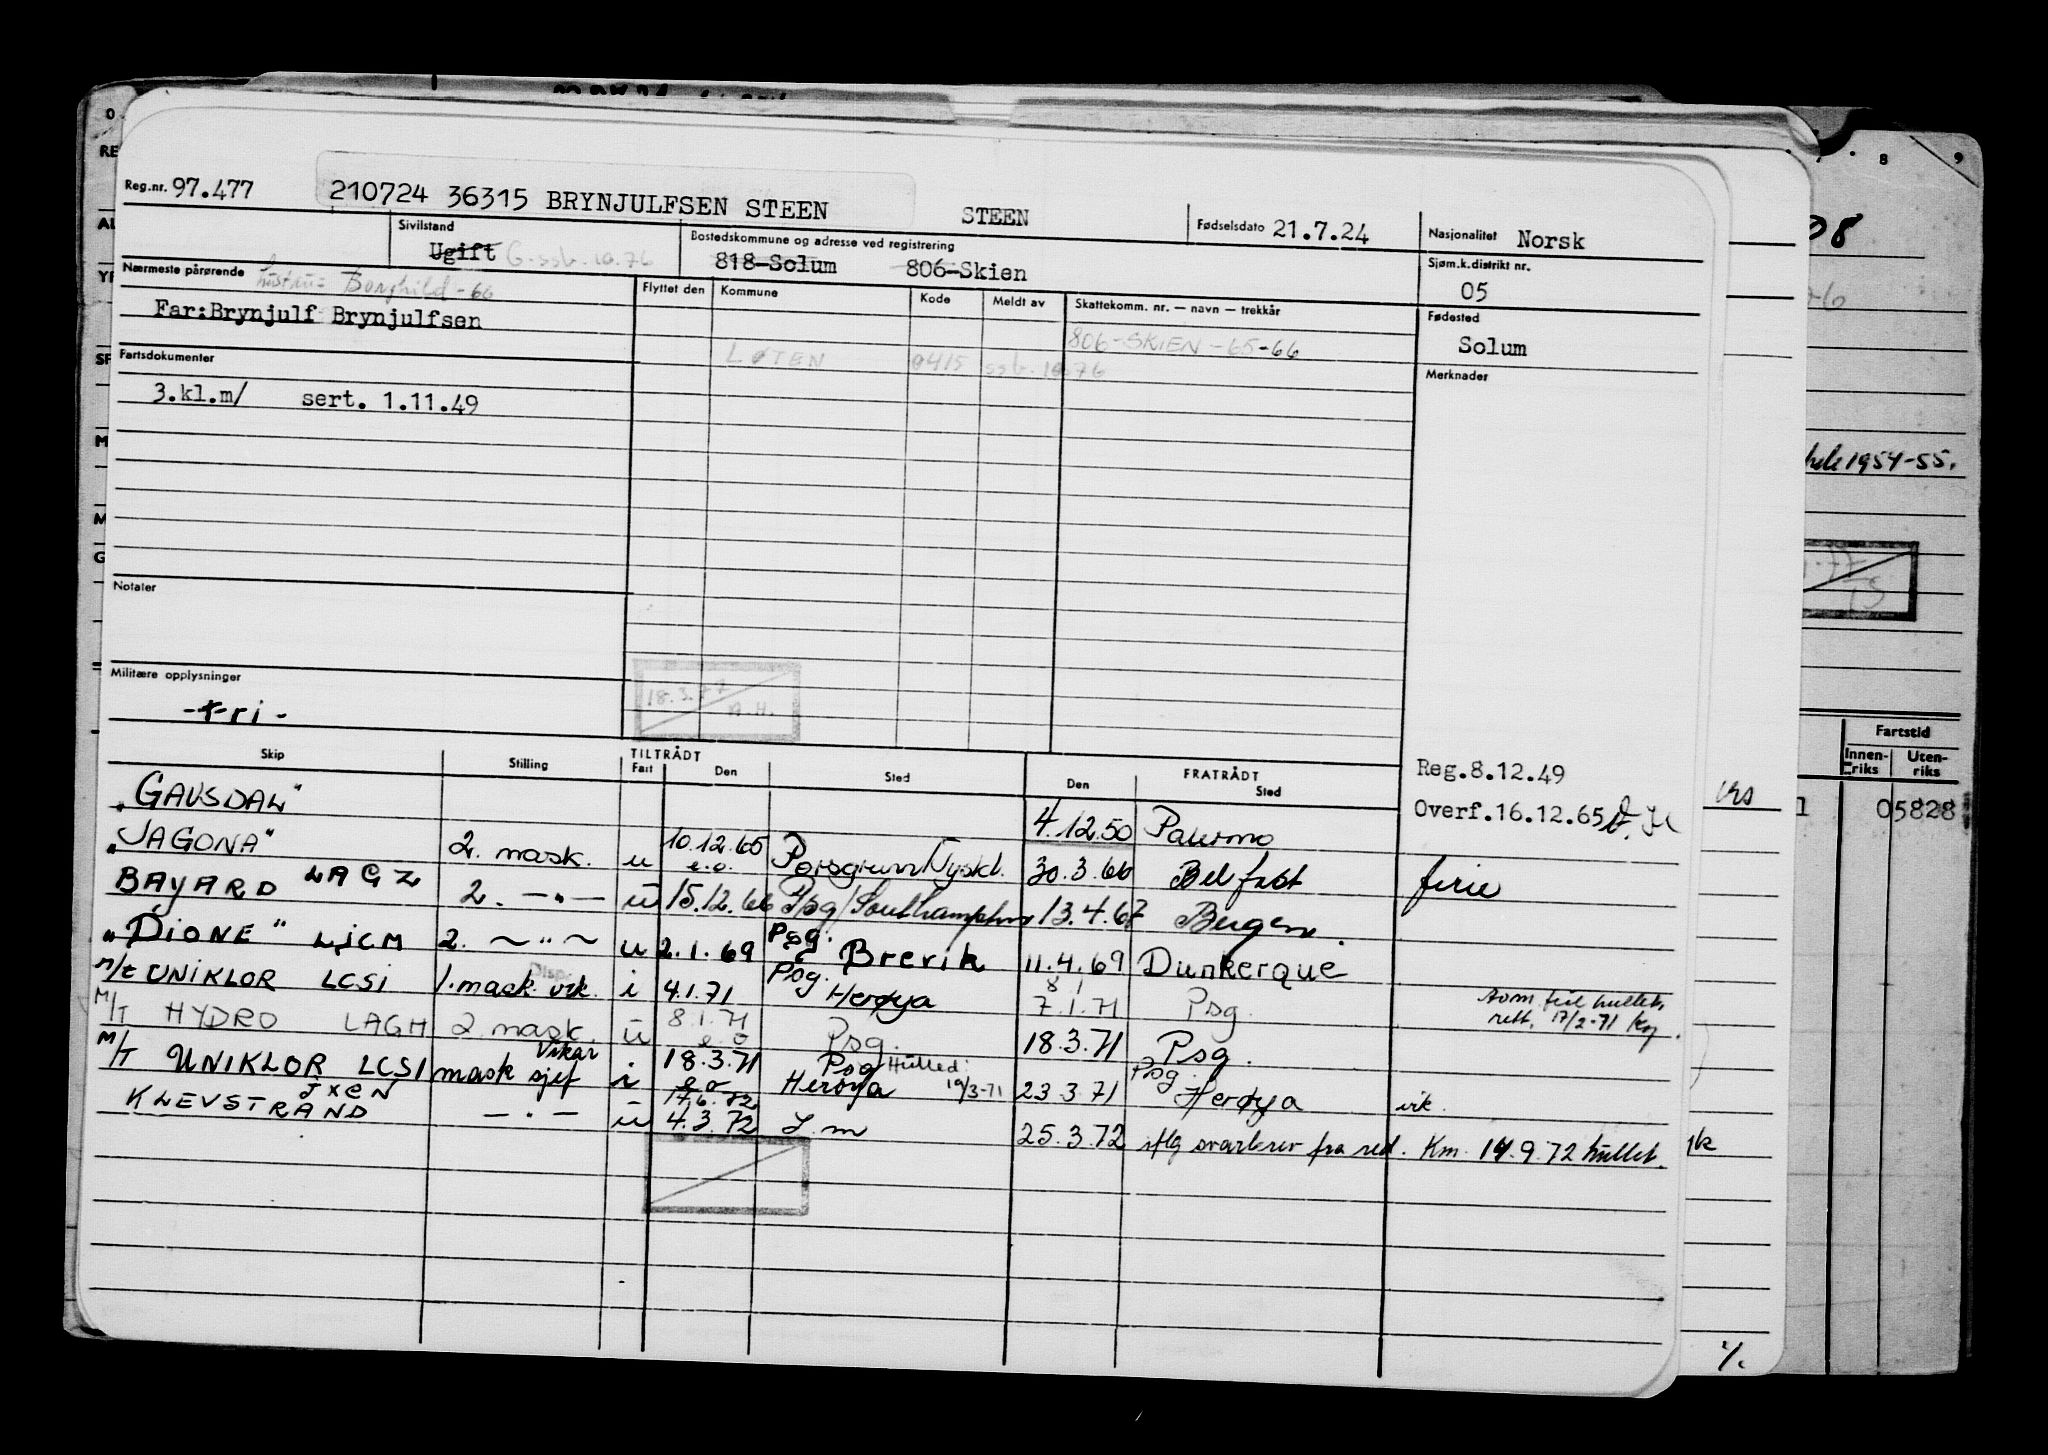 Reg.nr. 97.477 210724 36315 BRYNJULFSEN STEEN STEEN Fødselsdato 21.7.24 Nasjonalitet Norsk
Sivilstand Ugift G. ssb. 10.76
Bostedskommune og adresse ved registrering 818-Solum 806-Skien
Sjøm.k.distrikt nr. 05
Nærmeste pårørende Hustru: Borghild - 66
Far:Brynjulf Brynjulfsen
Flyttet den Kommune Kode Meldt av Skattekomm. nr. — navn — trekkår
Fødested
806-SKIEN-65-66
Solum
LØTEN 0415 ssb. 10.76
Fartsdokumenter
Merknader
3.kl.m/ sert. 1.11.49
Notater
Militære opplysninger
-fri-
18.3.77
A.H.
Skip Stilling TILTRÅDT Fart Den Sted FRATRÅDT Den Sted
Reg.8.12.49
Overf.16.12.65
"GAUSDAL" 4.12.50 Palermo
"JAGONA" 2. mask. u 10.12.65 e.o. Porsgrunn/Nyskl. 30.3.66 Belfast ferie
BAYARD LAGZ 2. -"- u 15.12.66 Psg/Southampton 13.4.67 Bergen.
"DIONE" LJCM 2. ~"~ u 2.1.69 Psg. Brevik 11.4.69 Dunkerque
M/T UNIKLOR LCSI 1. mask. vik. Disp. i 4.1.71 Psg. Herøya 8 7.1.71 Psg.
som feil hullet, rett. 17/2-71
M/T HYDRO LAGH 2 mask. u 8.1.71 e.o Psg. 18.3.71 Psg.
M/T UNIKLOR LCSI mask sjef Vikar i 18.3.71 e o Psg Herøya Hulled: 19/3-71 23.3.71 Psg. Herøya vik.
KLEVSTRAND JXEN - . - u 17.6.72 4.3.72 S.m 25.3.72 iflg svarbrev fra red. Km. 14.9.72 hullet.
8 9
hele 1954-55.
Fartstid
Innen-riks Uten-riks
05828